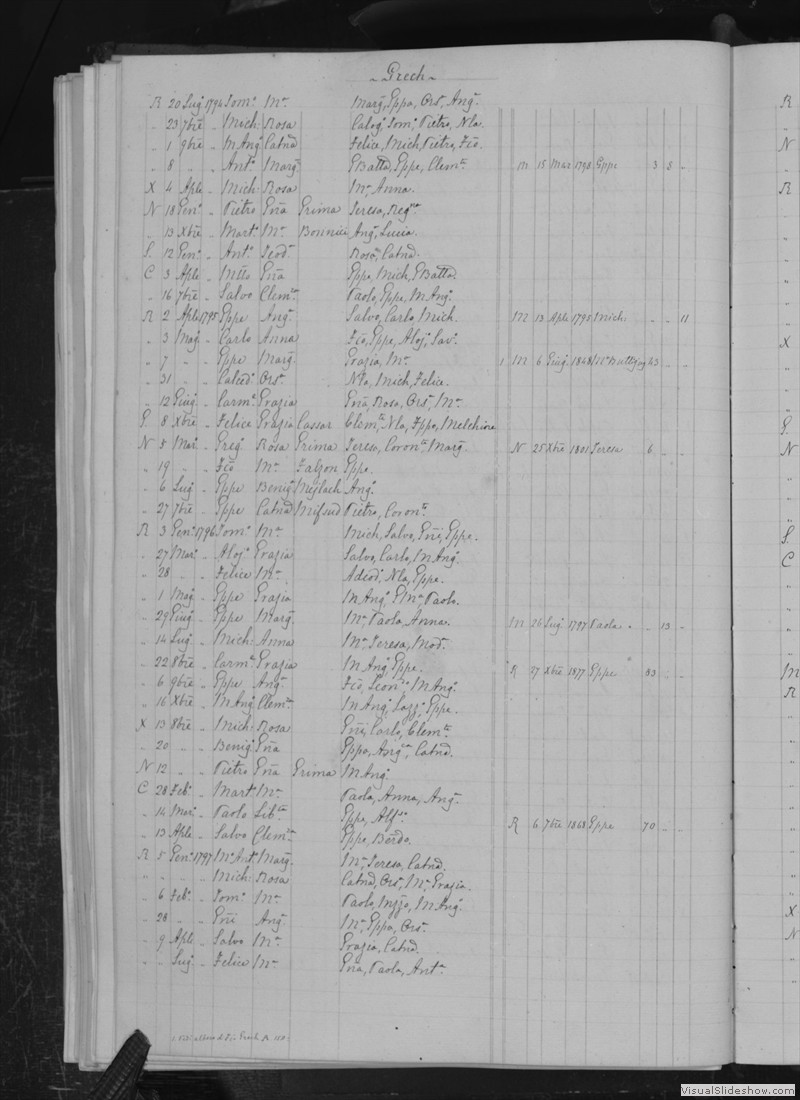 ~ Grech ~
R 20 Lug. 1794 Dom.o M.a Marg., Gppa, Ors., Ang.a
" 23 7bre " Mich. Rosa Calog. Dom.o Pietro, Nla.
" 1 9bre " M Ang. Catnd. Felice, Mich, Pietro, Fco.
" 8 " " Ant.o Marg. GBatta, Gppe, Clem.te m 15 Mar 1798 Gppe 3 5 "
X 4 Aple " Mich. Rosa M.a Anna.
N 18 Gen.o " Pietro Gna Grima Teresa, Reg.na
" 13 Xbre " Mart. M.a Bonnici Ang., Lucia.
S. 12 Gen.o " Ant.o Teod.a Rosa, Catnd.
C 3 Aple " Mtto Gna Gppa, Mich, GBatta.
" 16 7bre " Salvo Clem.za Paolo, Gppe, M Ang.
R 2 Aple 1795 Gppe Ang.a Salvo, Carlo, Mich. M 13 Aple 1795 Mich. " " 11
" 3 Mag. " Carlo Anna Fco, Gppe, Aloj., Sav.
" 7 " " Gppe Marg. Grazia, M.a 1 M 6 Giug. 1848 43 " "
" 31 " " Calced. Ors.a Nla, Mich, Felice.
" 12 Giug. " Carm. Grazia Gna, Rosa, Ors., M.a
G. 8 Xbre " Felice Grazia Cassar Clem.te, Nla, Gppa, Melchiora
N 5 Mar. " Greg. Rosa Grima Teresa, Coron.ta Marg. N 25 Xbre 1801 Teresa 6 " "
" 19 " " Fco M.a Falzon Gppe.
" 6 Lug. " Gppe Benig. Mejlach Ang.
" 27 7bre " Gppe Catnd Mifsud Pietro, Coron.ta
R 3 Gen.o 1796 Dom.o M.a Mich, Salvo, Gni, Gppe.
" 27 Mar. " Aloj. Grazia Salvo, Carlo, M Ang.
" 28 " " Felice M.a Adeod., Nla, Gppe.
" 1 Mag. " Gppe Grazia M Ang., GM.a Paolo.
" 29 Giug. " Gppe Marg. M.a Paola, Anna. M 26 Lug. 1797 Paola " 13 "
" 14 Lug. " Mich. Anna M.a Teresa, Mod.
" 22 8bre " Carm. Grazia M Ang., Gppe. R 27 Xbre 1877 Gppe 83 " "
" 6 9bre " Gppe Ang.a Fco, Leon.do M Ang.
" 16 Xbre " M Ang. Clem.a M Ang., Lazz., Gppe.
X 13 8bre " Mich. Rosa Gni, Carlo, Clem.te
" 20 " " Benig. Gna Gppa, Ang.a, Catnd.
N 12 " " Pietro Gna Grima M Ang.
C 28 Feb. " Mart. M.a Paola, Anna, Ang.a
" 14 Mar. " Paolo Lib.ta Gppe, Alf.so R 6 7bre 1868 Gppe 70 " "
" 13 Aple " Salvo Clem.za Gppe, Berdo.
R 5 Gen.o 1797 M.o Ant. Marg. M.a Teresa, Catnd.
" " " Mich. Rosa Catnd, Ors., M.a Grazia.
" 6 Feb. " Dom.o M.a Paolo, Nzzo, M Ang.
" 28 " " Gni Ang.a M.a Gppa, Ors.a
" 9 Aple " Salvo M.a Grazia, Catnd.
" " Lug. " Felice M.a Gna, Paola, Ant.a
R
N
R
X
G.
N
S.
C
M
R
X
N
VisualSlideshow.com